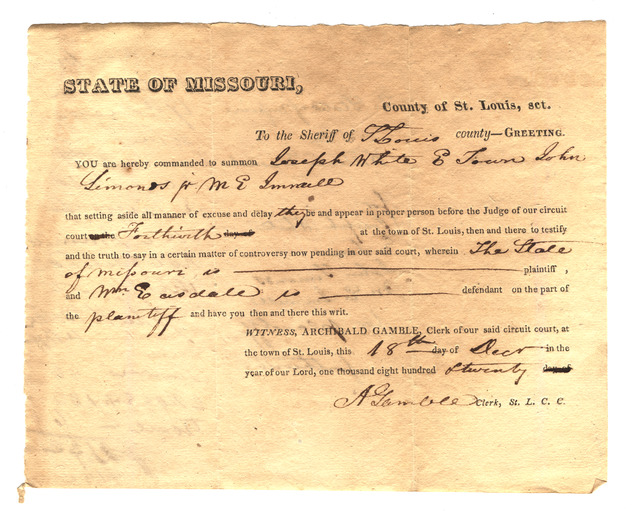 STATE OF MISSOURI,
County of St. Louis, sct.
To the Sheriff of St Louis county—GREETING.
YOU are hereby commanded to summon Joseph White E Town John
Simonds jr M E
that setting aside all manner of excuse and delay they be and appear in proper person before the Judge of our circuit
court on the Forthwith day of at the town of St. Louis, then and there to testify
and the truth to say in a certain matter of controversy now pending in our said court, wherein The State
of missouri is plaintiff,
and Wm Easdale is defendant on the part of
the plaintiff and have you then and there this writ.
WITNESS, ARCHIBALD GAMBLE, Clerk of our said circuit court, at
the town of St. Louis, this 18th day of Decr in the
year of our Lord, one thousand eight hundred & twenty day of
A Gamble Clerk, St. L. C. C.